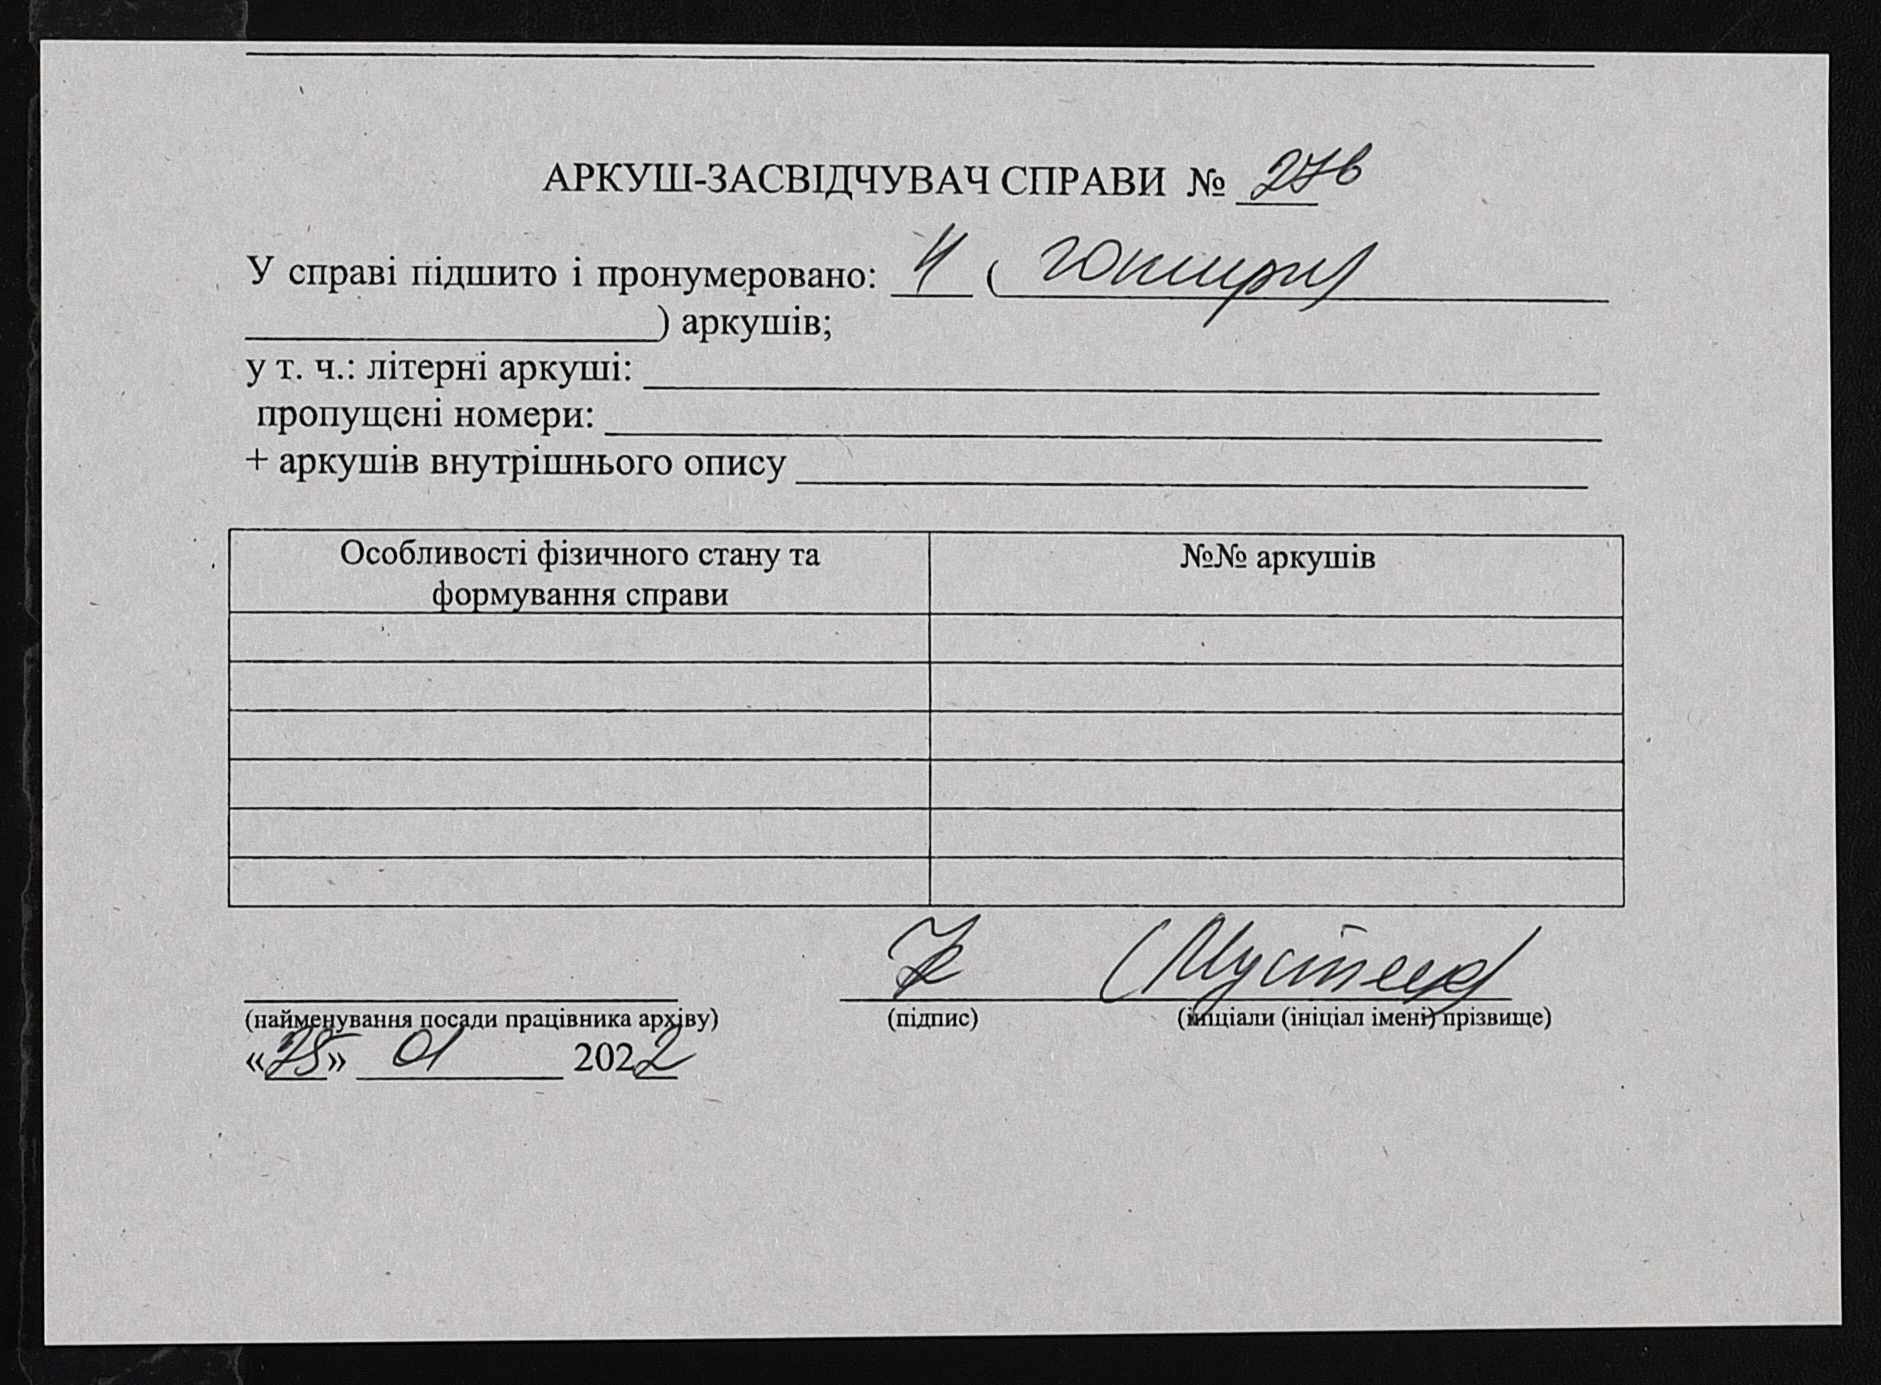 АРКУШ-ЗАСВІДЧУВАЧ СПРАВИ № 27в
У справі підшито і пронумеровано: 4 (чотири
) аркушів;
у т. ч.: літерні аркуші:
пропущені номери:
+ аркушів внутрішнього опису
Особливості фізичного стану та
формування справи
№№ аркушів
(найменування посади працівника архіву)
(підпис)
(ініціали (ініціал імені) прізвище)
«25» 01 2022